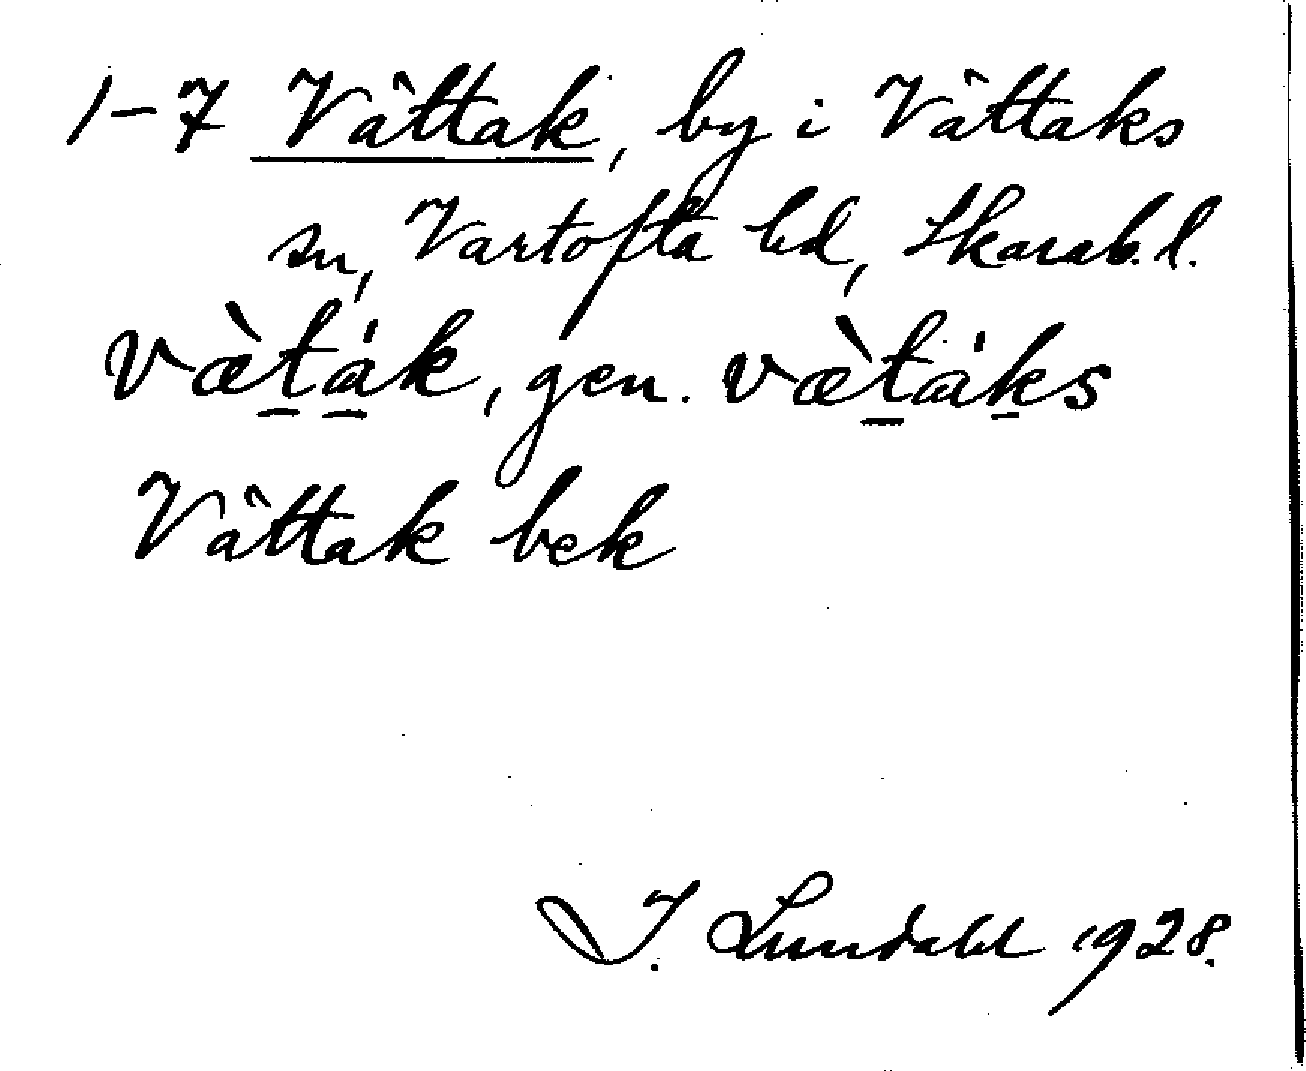 1–7 Vättak, by i Vättaks
sn, Vartofta hd, Skarab. l.
væ̀ta̍k, gen. væ̀ta̍ks
Vättak bek
I. Lundahl 1928.